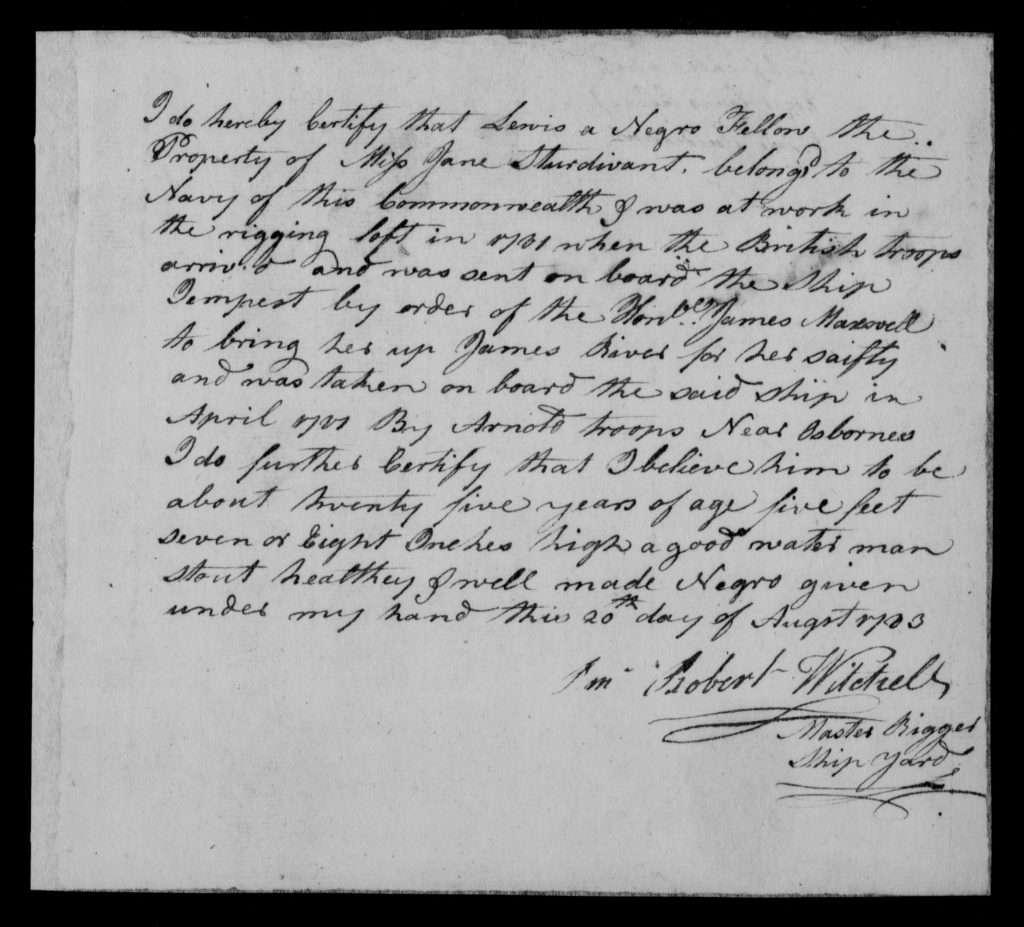 I do hereby Certify that Lewis a Negro Fellow the
Property of Miss Jane Sturdivant. belong'd to the
Navy of this Commonwealth & was at work in
the rigging loft in 1781 when the British troops
arriv'd and was sent on board the ship
Tempest by order of the Honble. James Maxwell
to bring her up James River for her saifty
and was taken on board the said ship in
April 1781 By Arnold troops Near Osbornes
I do further Certify that I believe him to be
about twenty five years of age five feet
seven or Eight Inches high a good water man
stout healthey & well made Negro given
under my hand this 20th day of Augst 1783
Robert Mitchell
Master Rigger
Ship Yard